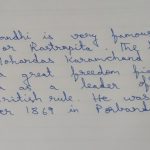 andhi is very famous
or Rastrapita . The
Mohandas Karamchand
a great freedom fi
as a leader of
British rule. He was
er 1869 in Porband